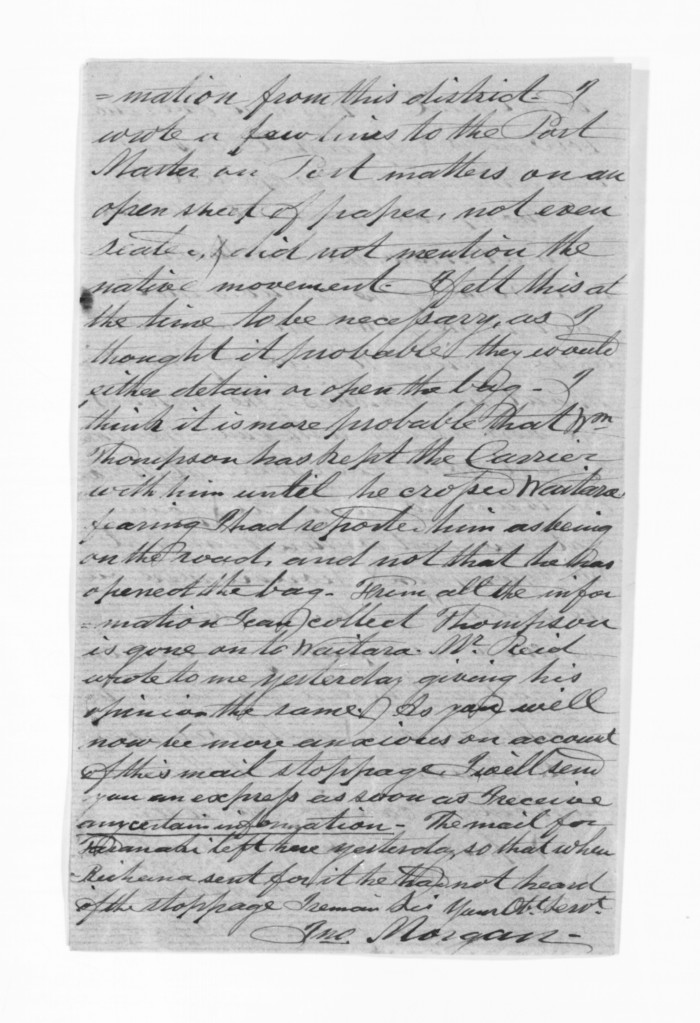 =mation from this district. I
wrote a few lines to the Post
Master on Post matters on an
open sheet of paper, not even
sealed, & did not mention the
native movement. I felt this at
the time to be necessary, as I
thought it probable they would
either detain or open the bag - I
think it is more probable that Wm
Thompson has kept the Carrier
with him until he crosed Waitara
fearing I had reported him as being
on the road, and not that he has
opened the bag - From all the infor
=mation I can collect Thompson
is gone on to Waitara. Mr. Reid
wrote to me yesterday giving his
opinion the same. As you will
now be more anxious on account
of this mail stoppage, I will send
you an express as soon as I receive
any certain information - The mail for
left here yesterday, so that when
sent for it he had not heard
of the stoppage I remain Sir Your Obt. Servt.
Jno. Morgan -